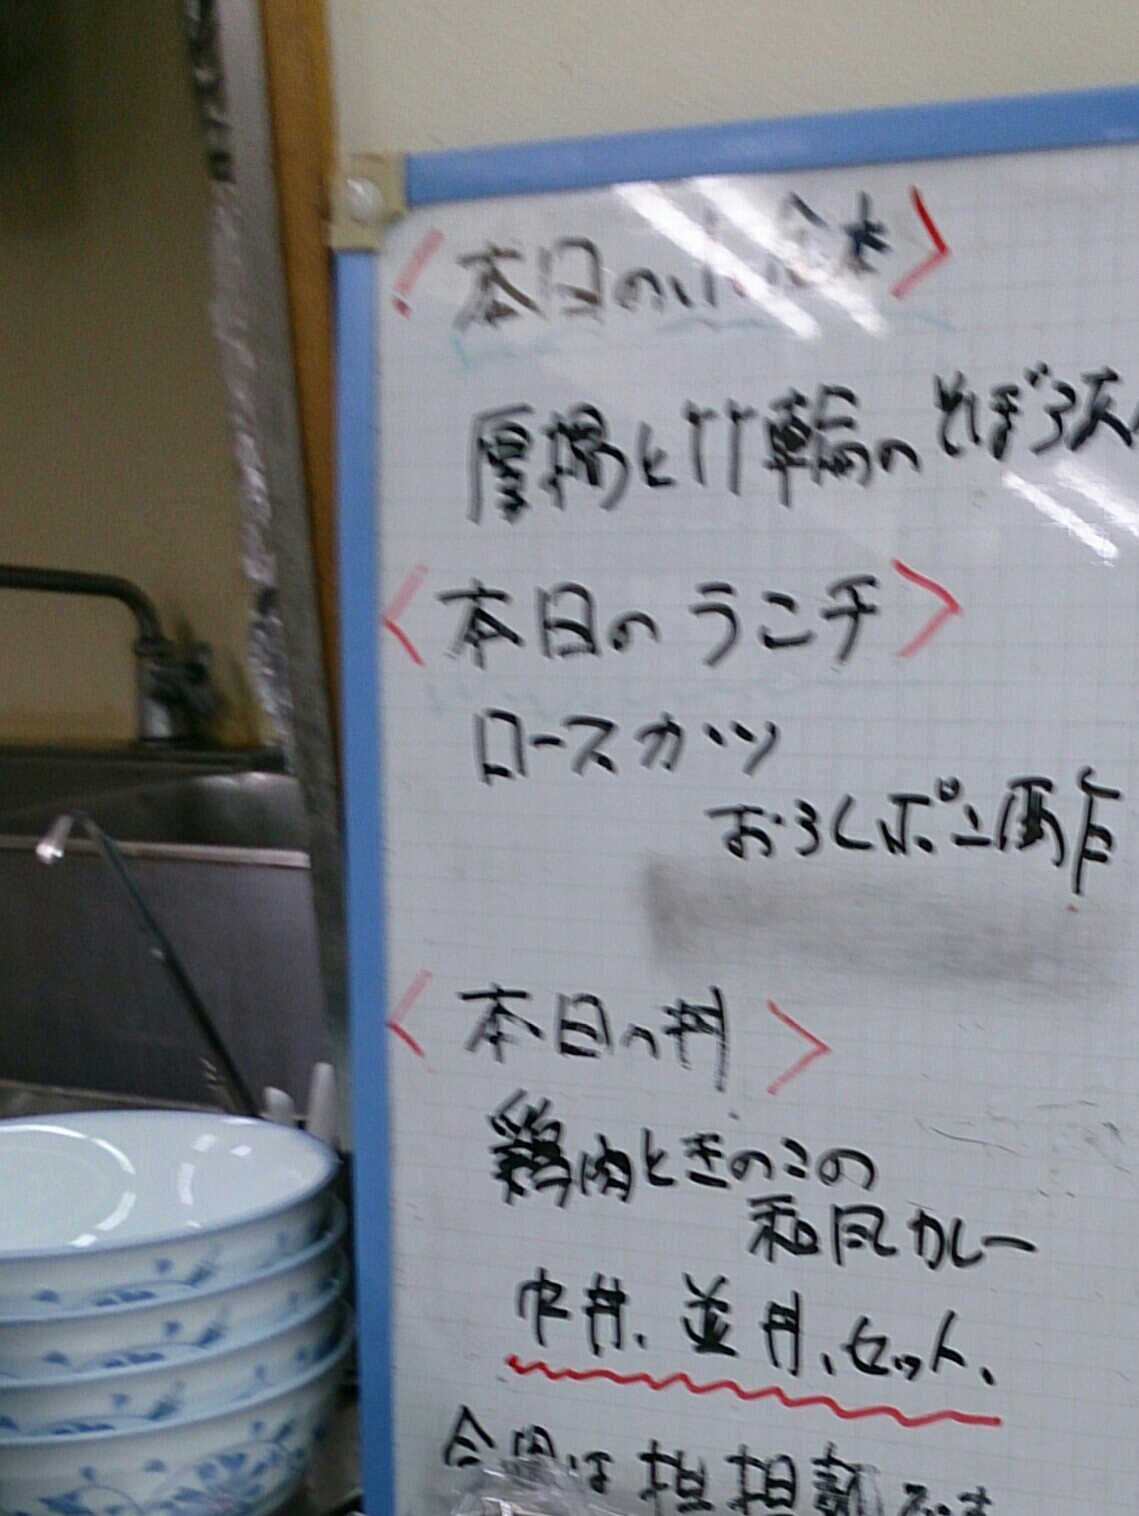 〈本日の小鉢〉
厚揚と竹輪のそぼろ
〈本日のランチ〉
ロースカツ
おろしポン酢
〈本日の丼〉
鶏肉ときのこの
和風カレー
中丼、並丼、セット、
今週は担担麺です